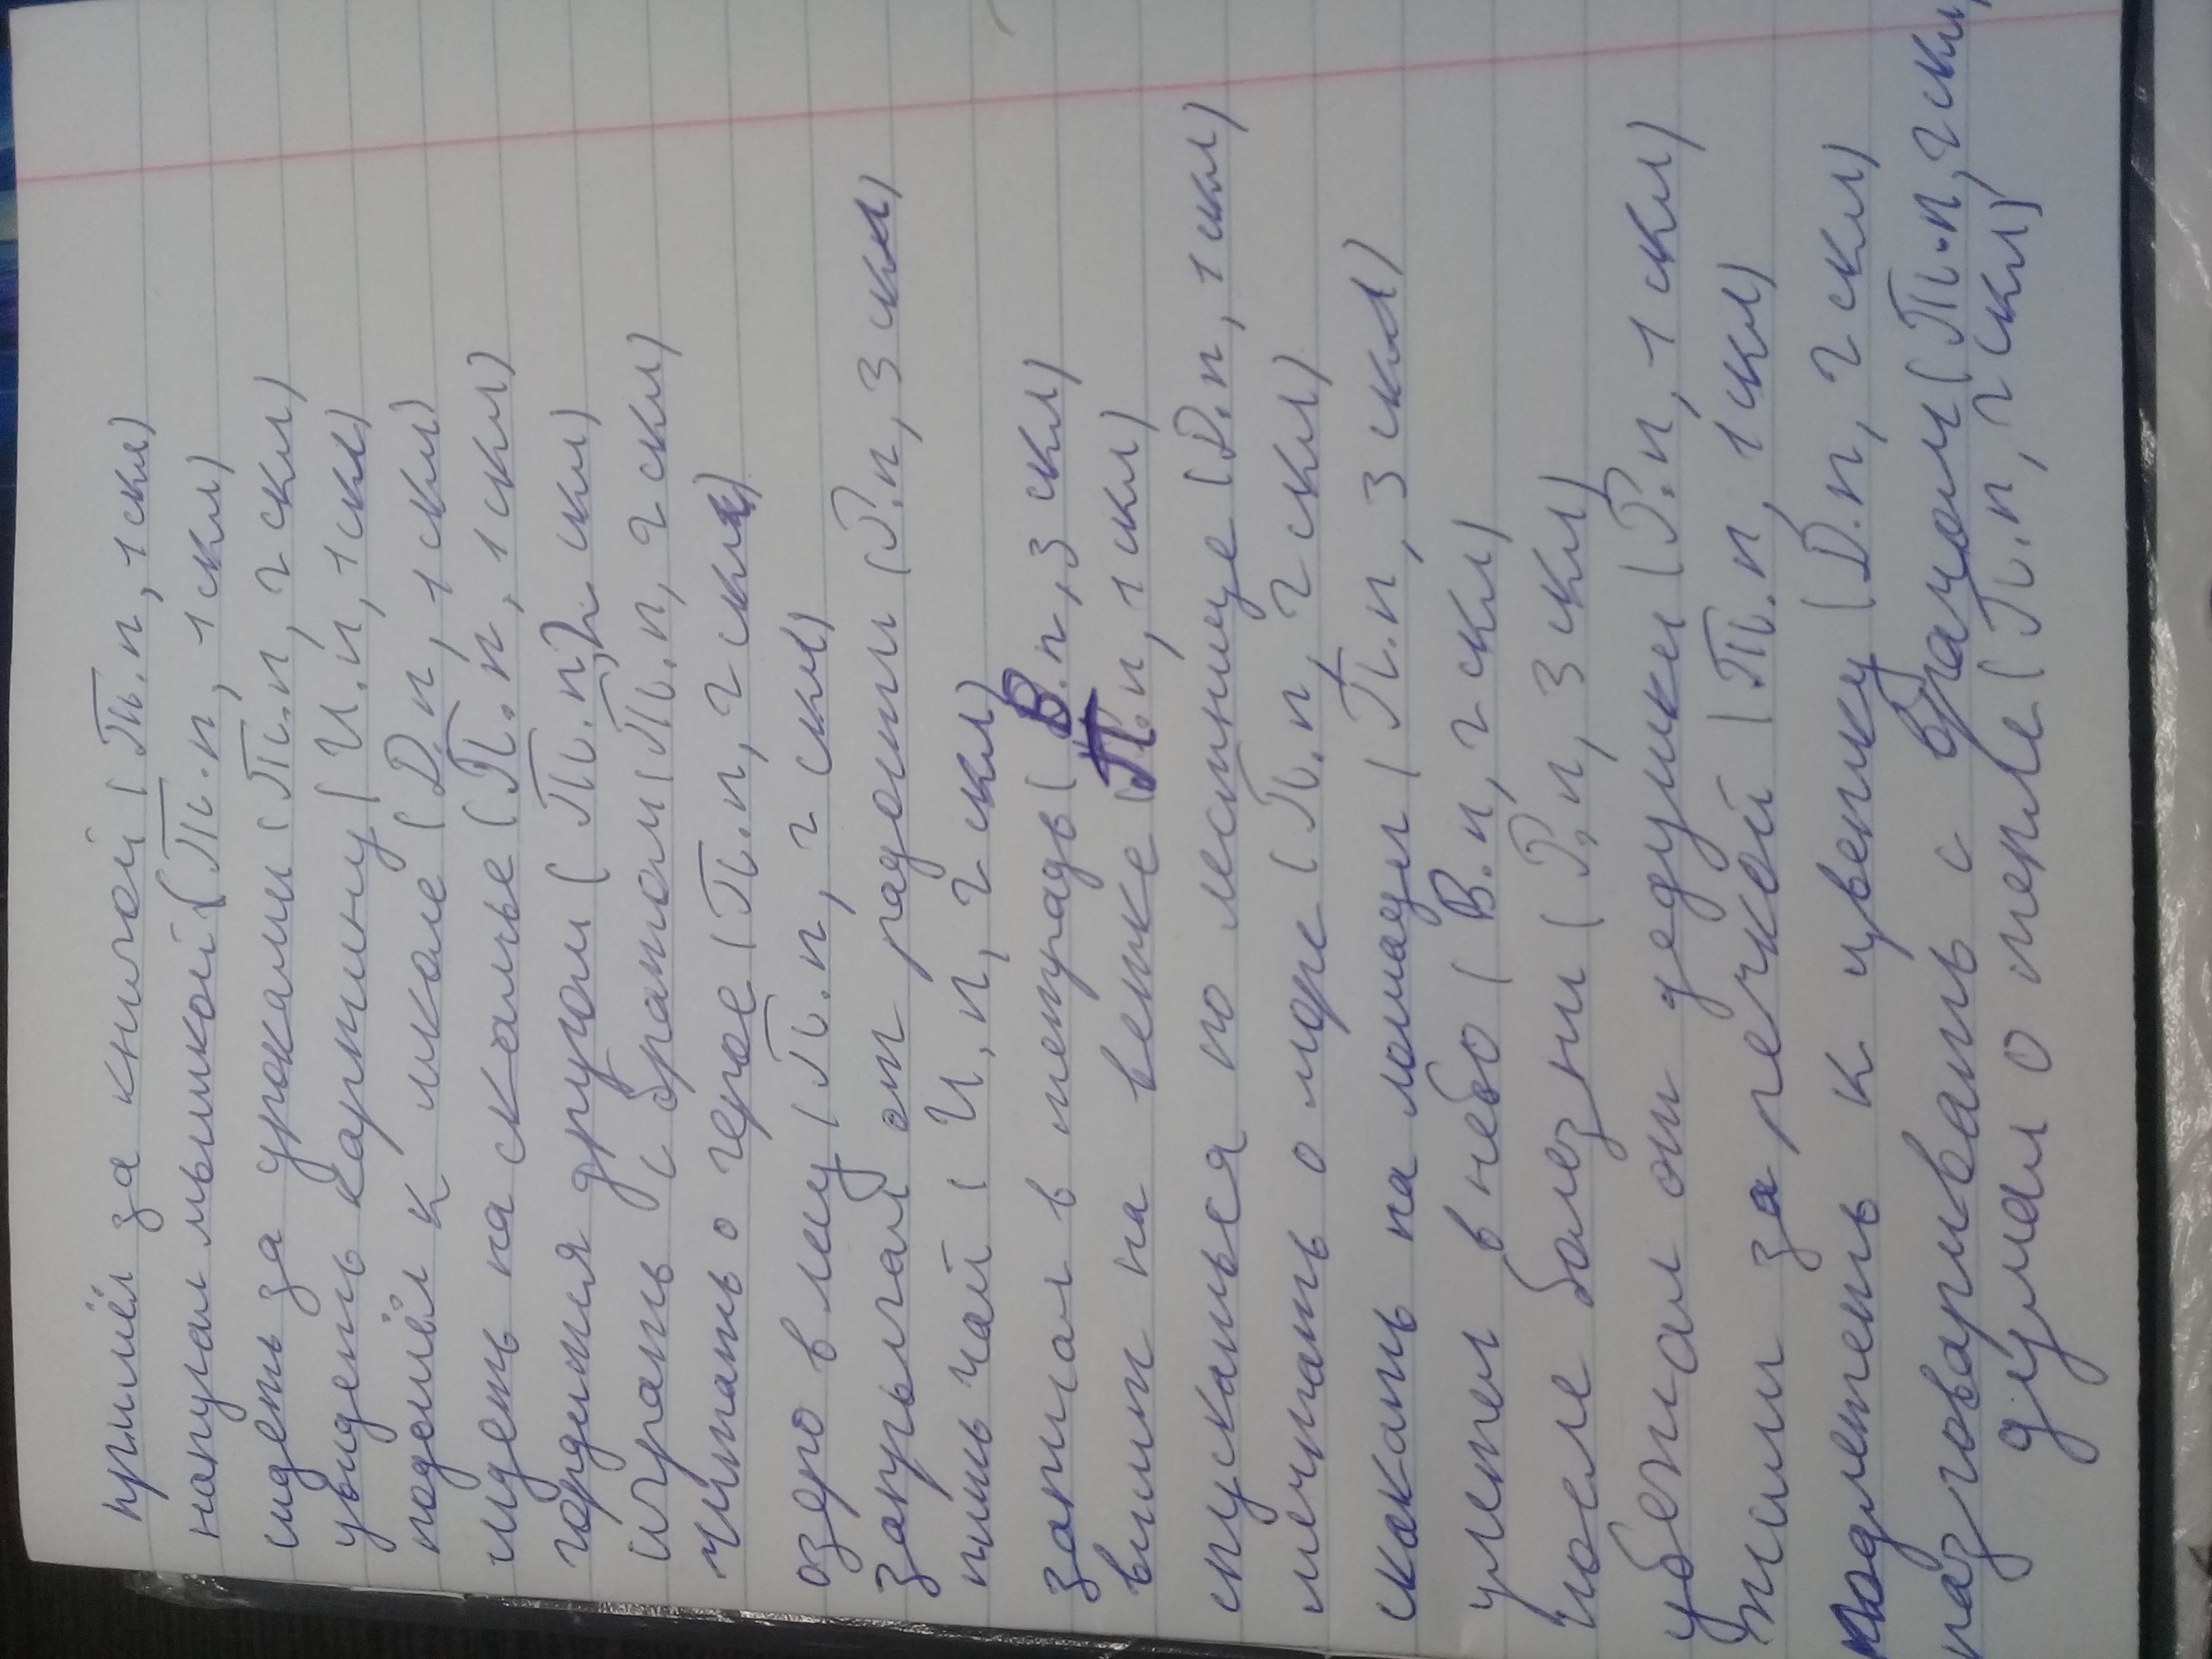 пришёл за книгой (Тв.п, 1 скл)
напугал мышкой (Тв.п, 1 скл)
сидеть за уроками (Тв.п, 2 скл)
увидеть картину (И.п, 1 скл)
подошёл к школе (Д.п, 1 скл)
сидеть на скамье (П.п, 1 скл)
гордится другом (Тв.п, 2 скл)
играть с братом (Тв.п, 2 скл)
читать о герое (П.п, 2 скл)
озеро в лесу (П.п, 2 скл)
запрыгал от радости (Р.п, 3 скл)
пить чай (И.п, 2 скл)
записал в тетрадь (В.п, 3 скл)
висит на ветке (П.п, 1 скл)
спускаться по лестнице (Д.п, 1 скл)
мечтать о море (П.п, 2 скл)
скакать на лошади (П.п, 3 скл)
улетел в небо (В.п, 2 скл)
после болезни (Р.п, 3 скл)
убежал от дедушки (Р.п, 1 скл)
жили за речкой (Тв.п, 1 скл)
подлететь к цветку (Д.п, 2 скл)
разговаривать с врачом (Тв.п, 2 скл)
думал о поле (П.п, 2 скл)